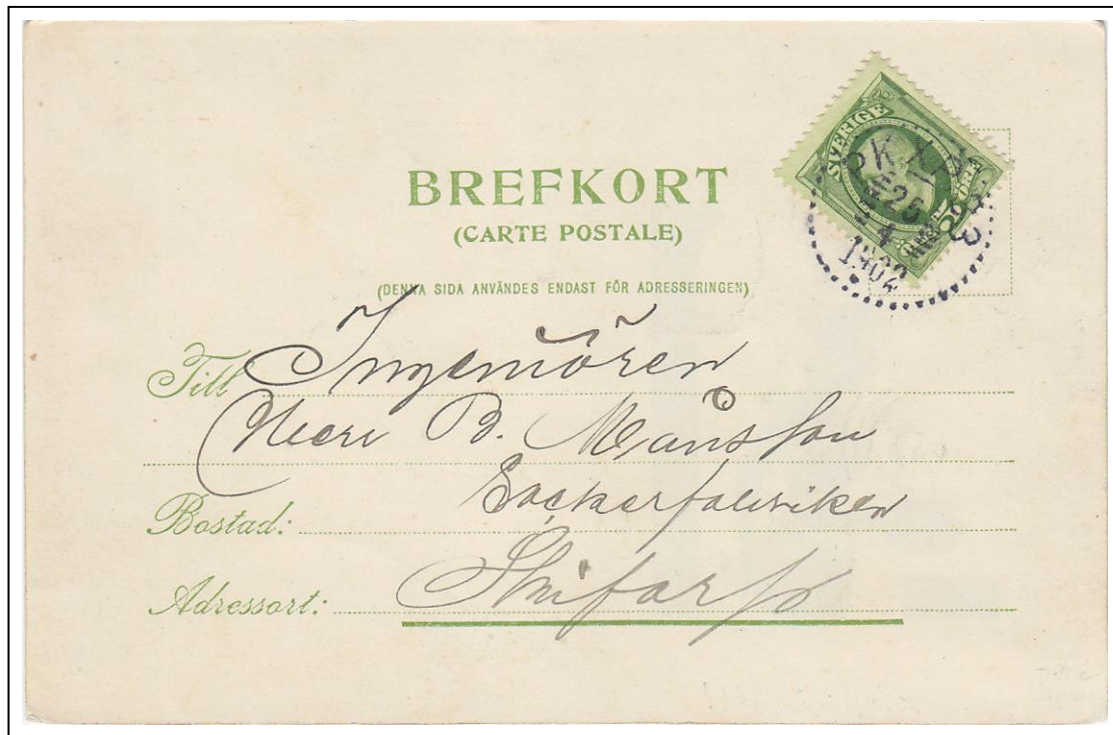 SVERIGE
PKXP
25
4
1902
BREFKORT
(CARTE POSTALE)
(DENNA SIDA ANVÄNDES ENDAST FÖR ADRESSERINGEN)
Till Ingeniören
Herr B. Månsson
Bostad: Sockerfabriken
Adressort: